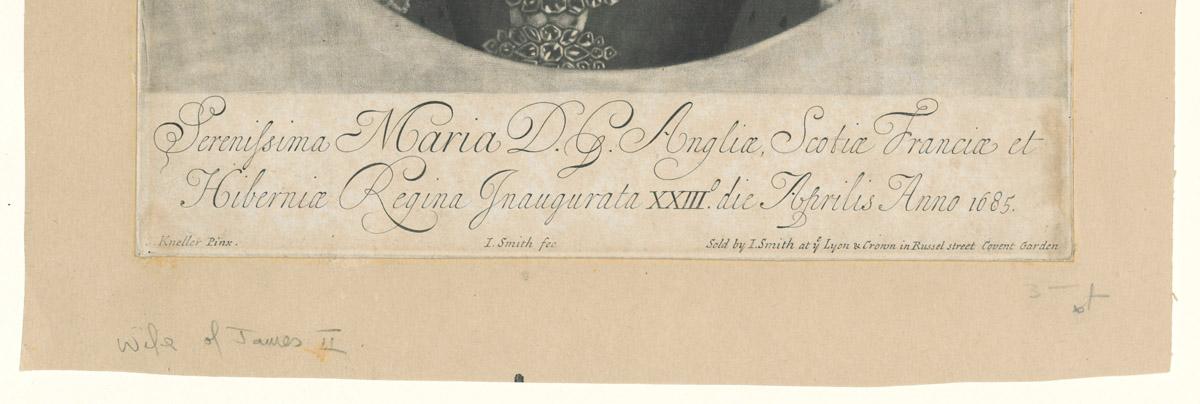 Serenissima Maria D. G. Angliæ, Scotiæ Franciæ et
Hiberniæ Regina Inaugurata XXIII.º die Aprilis Anno 1685.
Kneller Pinx.
I. Smith fec
Sold by I. Smith at yͤ Lyon & Crown in Russel street Covent Garden
Wife of James II